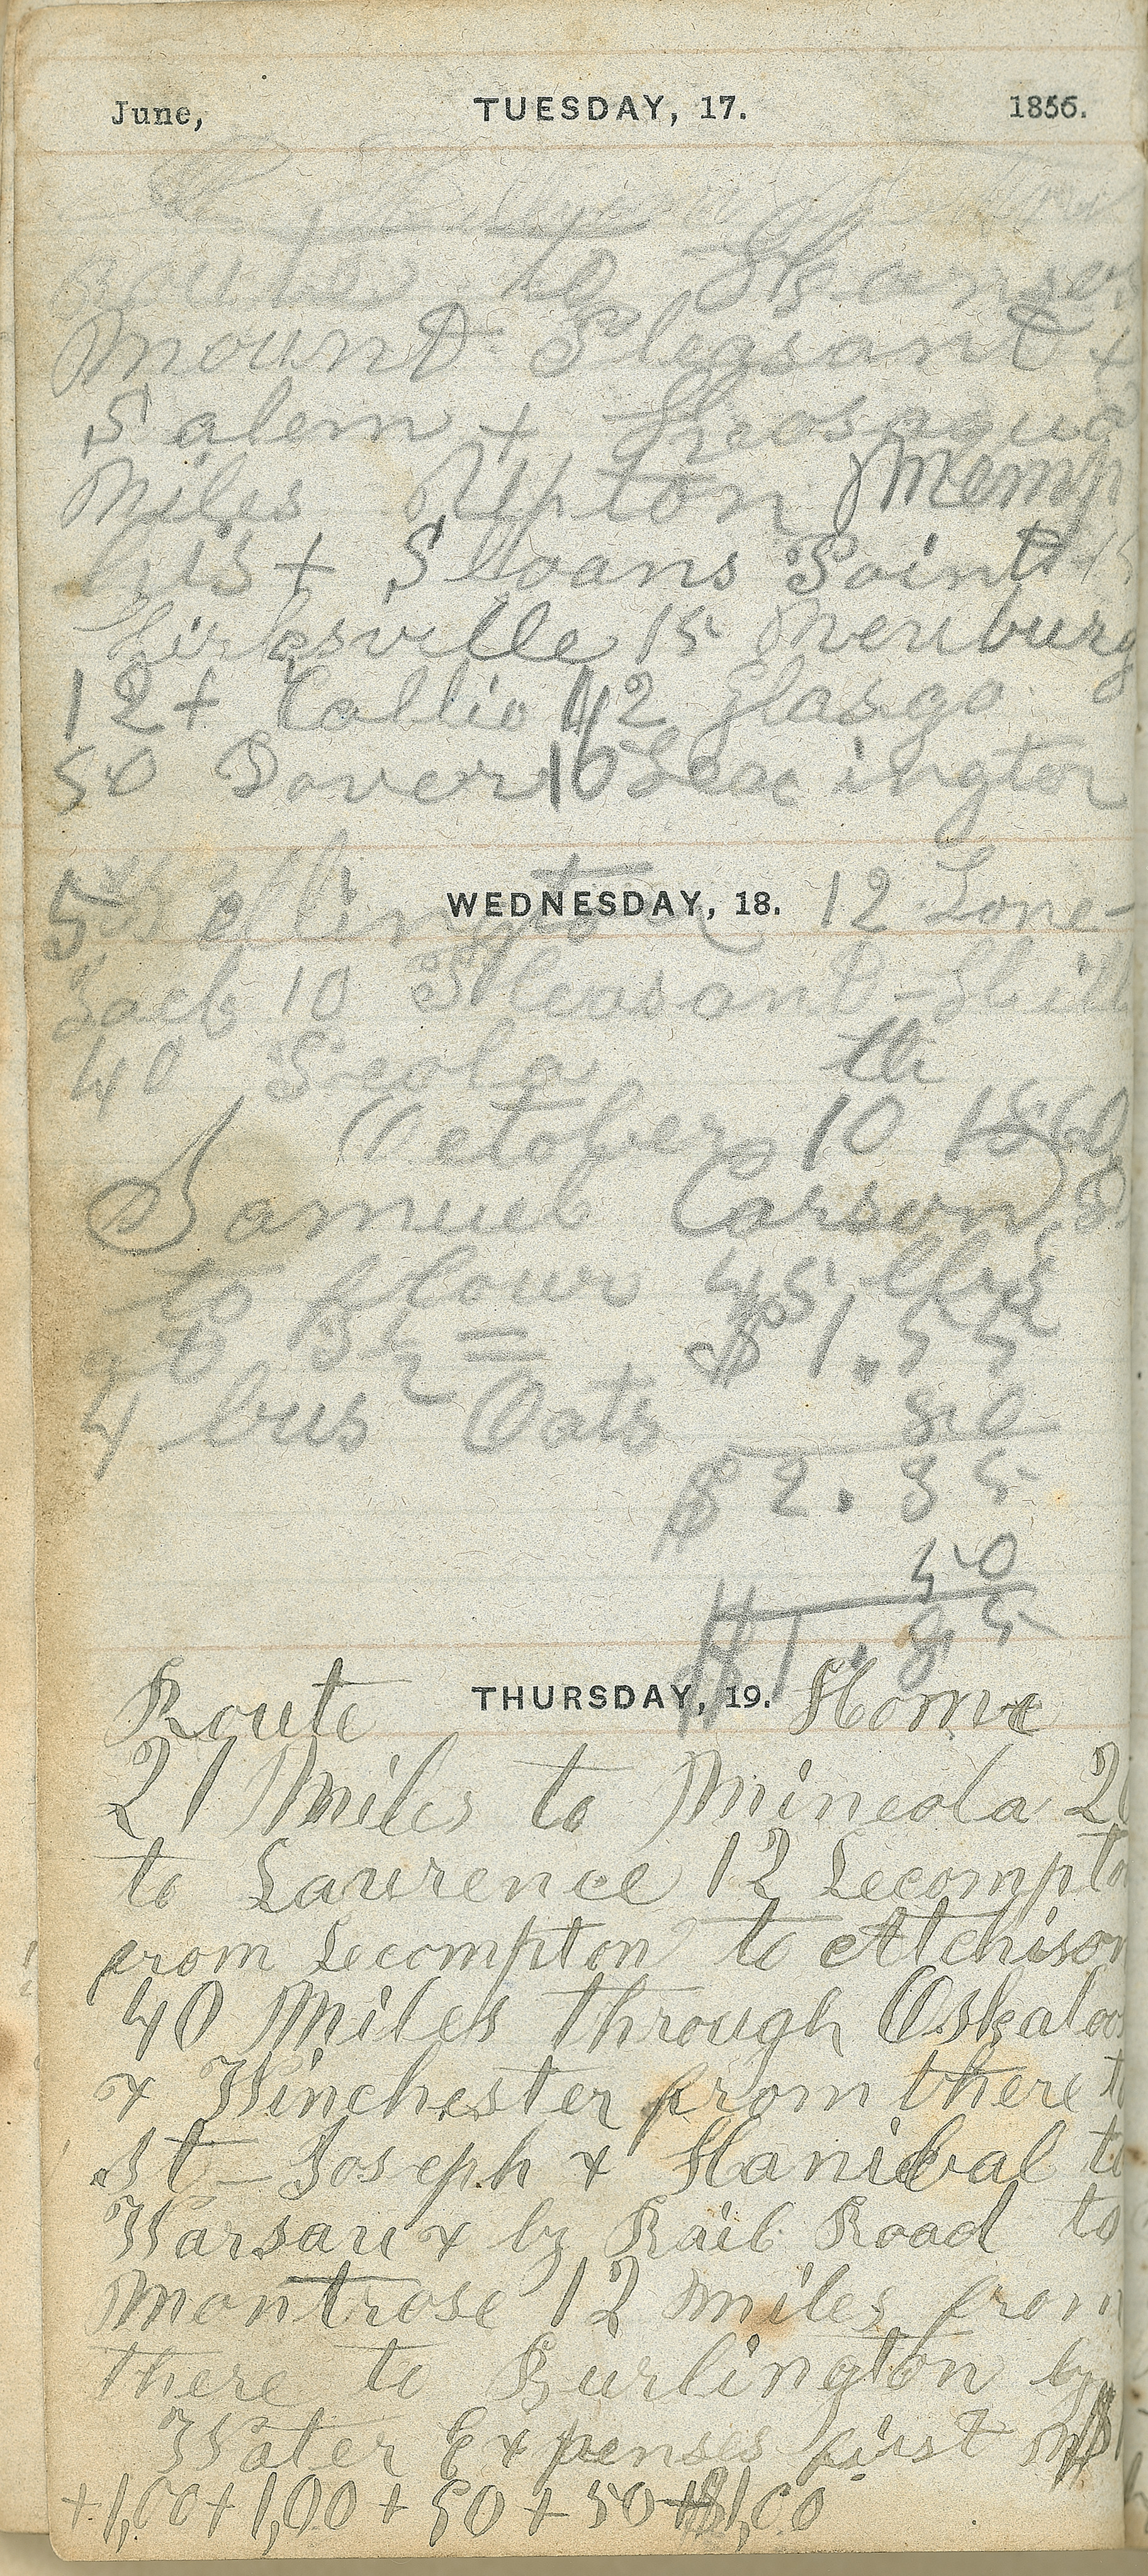 June, TUESDAY, 17. 1856.
routes to Kansas
Mount Pleasant +
Salem + Keosaqua
Miles Upton Memp
his + Sloans Point
Kirksville 15 Neuburg
12 + Callio 42 Glasgo
50 Dover 10 Lexington
WEDNESDAY, 18. 12 Lone
Jack 10 Pleasant-Hill
40
October 10th 1860
Samuel Carson
to flour 45 lbs
$1.55
4 bus Oats 80
$2.35
50
$1.85
Route THURSDAY, 19. Home
21 Miles to Mineola 2
to Lawrence 12 Lecompto
from Lecompton to Atchison
40 Miles through Oskaloo
+ Winchester from there t
St-Joseph + Hanibal to
Warsaw + by Rail Road to
Montrose 12 miles from
there to Burlington by
Water Expenses first
+1,00+1,00+50+50+$1,00